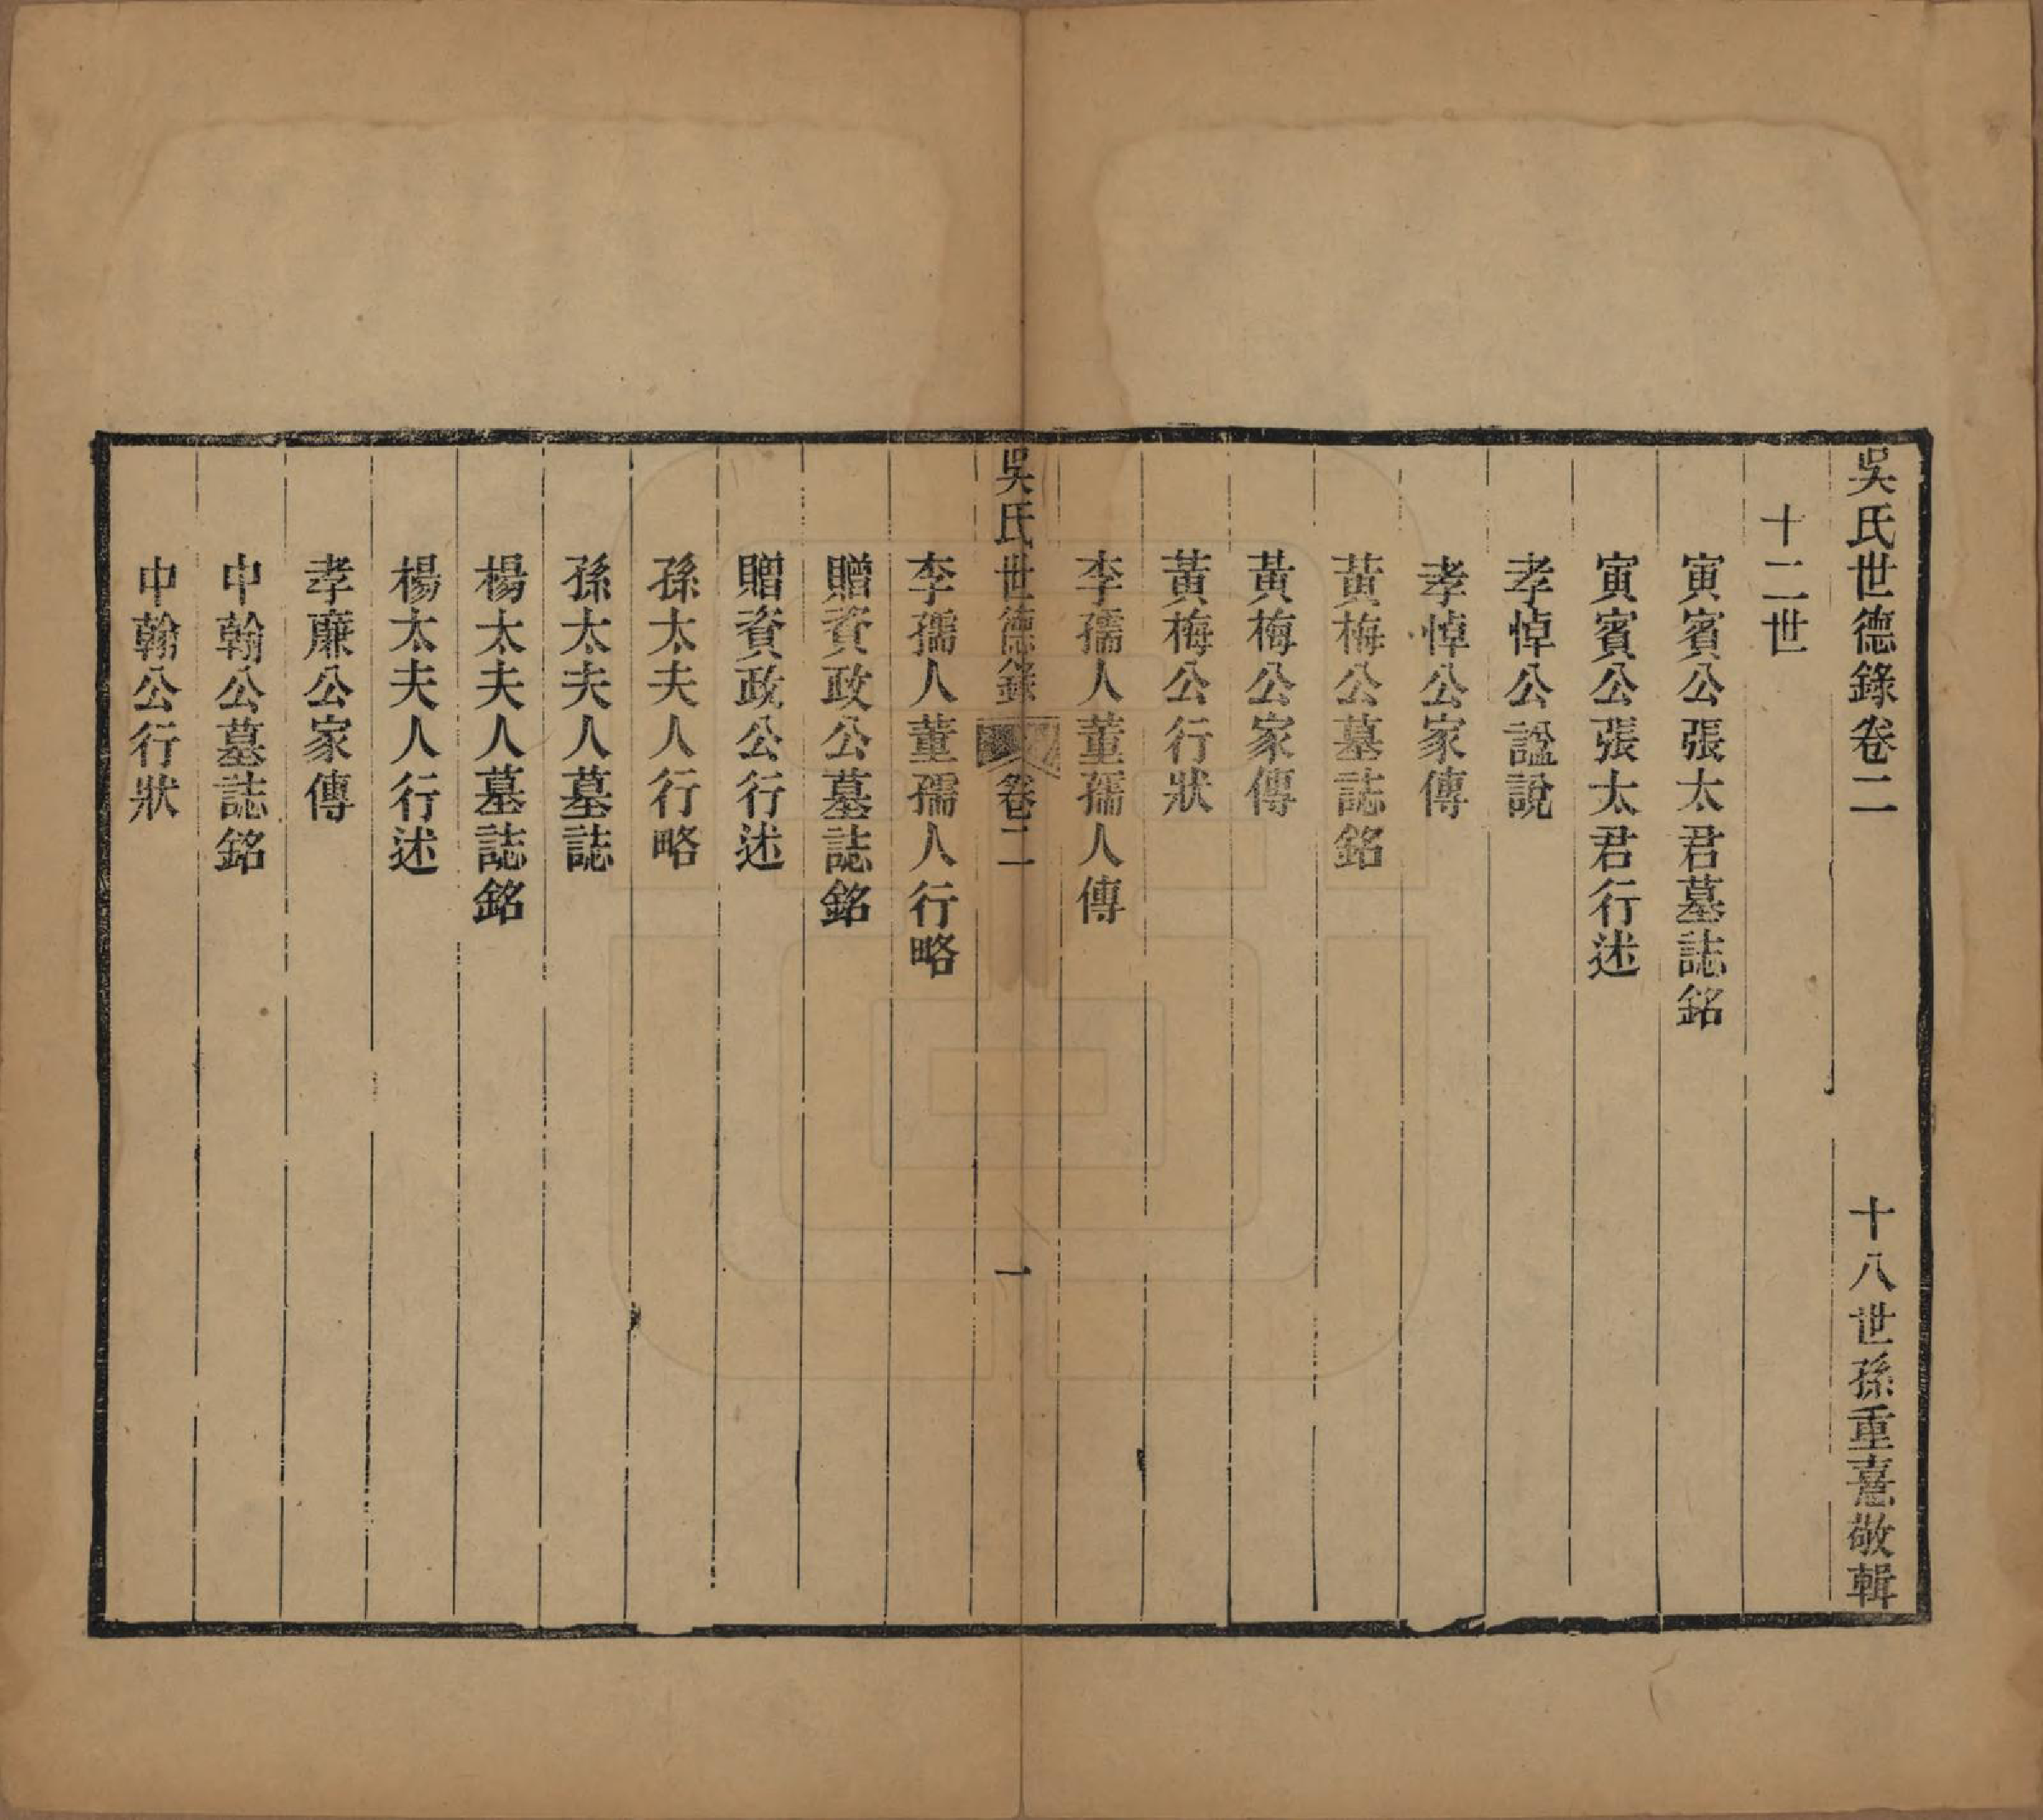 吳氏世德錄卷二　十八世孫重憙敬輯
十二世
寅賓公張太君墓誌銘
寅賓公張太君行述
孝悼公諡說
孝悼公家傳
黃梅公墓誌銘
黃梅公家傳
黃梅公行狀
李孺人董孺人傳
吳氏世德錄　卷二　一
李孺人董孺人行略
贈資政公墓誌銘
贈資政公行述
孫太夫人行略
孫太夫人墓誌
楊太夫人墓誌銘
楊太夫人行述
孝廉公家傳
中翰公墓誌銘
中翰公行狀